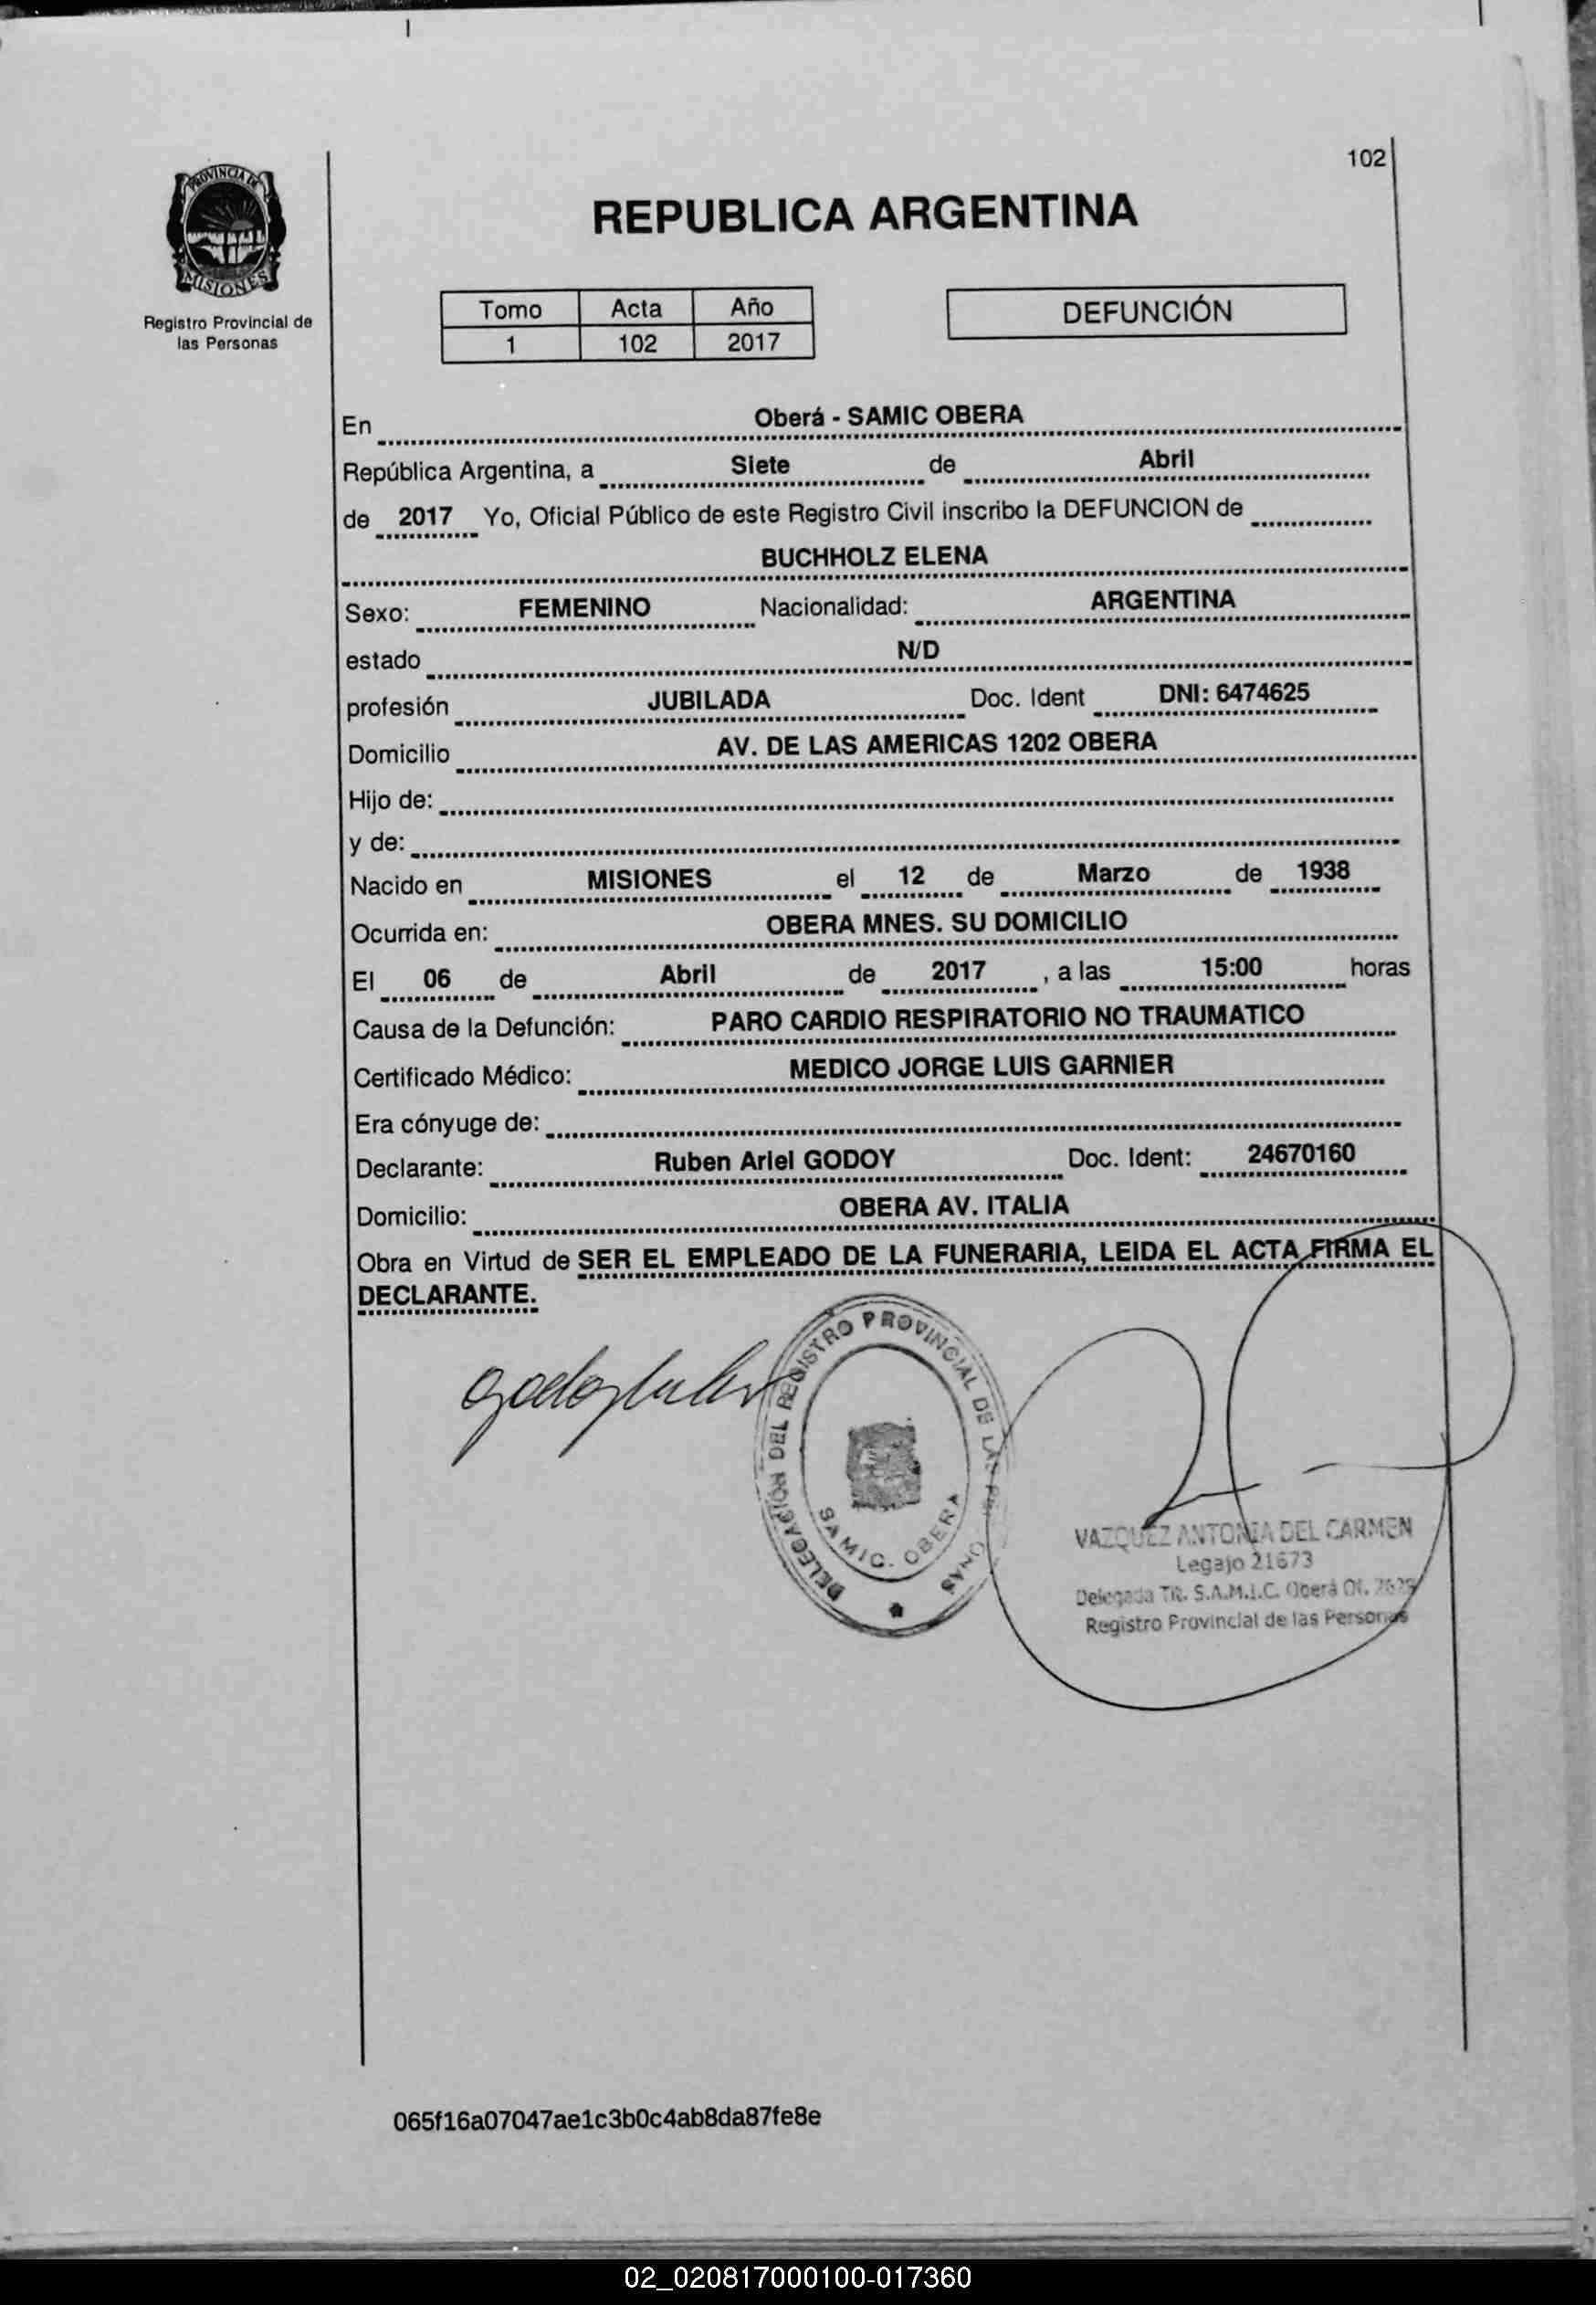 102
PROVINCIA DE
MISIONES
Registro Provincial de
las Personas
REPUBLICA ARGENTINA
Tomo Acta Año
1 102 2017
DEFUNCIÓN
En Oberá - SAMIC OBERA
República Argentina, a Siete de Abril
de 2017 Yo, Oficial Público de este Registro Civil inscribo la DEFUNCION de
BUCHHOLZ ELENA
Sexo: FEMENINO Nacionalidad: ARGENTINA
estado N/D
profesión JUBILADA Doc. Ident DNI: 6474625
Domicilio AV. DE LAS AMERICAS 1202 OBERA
Hijo de:
y de:
Nacido en MISIONES el 12 de Marzo de 1938
Ocurrida en: OBERA MNES. SU DOMICILIO
El 06 de Abril de 2017 , a las 15:00 horas
Causa de la Defunción: PARO CARDIO RESPIRATORIO NO TRAUMATICO
Certificado Médico: MEDICO JORGE LUIS GARNIER
Era cónyuge de:
Declarante: Ruben Ariel GODOY Doc. Ident: 24670160
Domicilio: OBERA AV. ITALIA
Obra en Virtud de SER EL EMPLEADO DE LA FUNERARIA, LEIDA EL ACTA FIRMA EL
DECLARANTE.
DELEGACIÓN DEL REGISTRO PROVINCIAL DE LAS
SAMIC. OBERA
VAZQUEZ ANTONIA DEL CARMEN
Legajo 21673
Delegada Tit. S.A.M.I.C. Oberá Of.
Registro Provincial de las Personas
065f16a07047ae1c3b0c4ab8da87fe8e
02_020817000100-017360